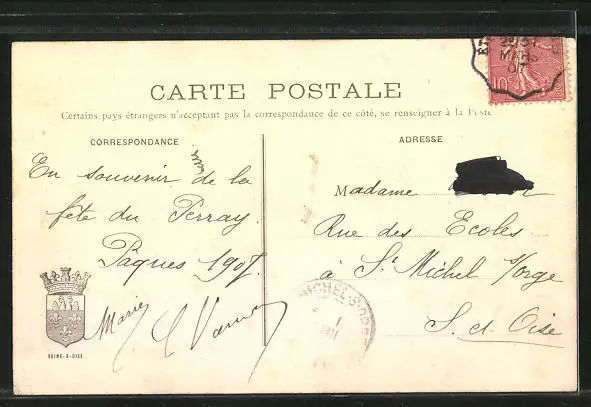 CARTE POSTALE
Certains pays étrangers n'acceptant pas la correspondance de ce côté, se renseigner à la Poste
CORRESPONDANCE
En souvenir de la
fête du Perray.
Pâques 1907.
Marie
SEINE-&-OISE
ADRESSE
Madame
Rue des Ecoles
à St Michel s/orge
S. et Oise
10c
MARS
07
MICHEL-S-ORGE